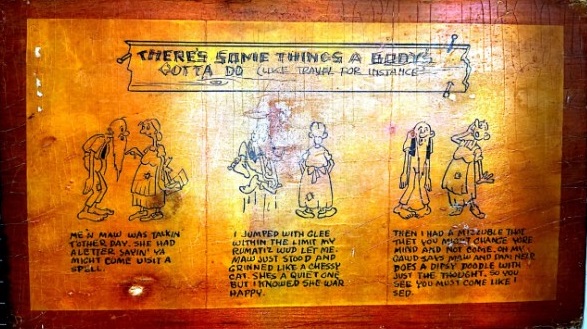 THERE'S SOME THINGS A BODY'S
GOTTA DO (LIKE TRAVEL FOR INSTANCE)
ME'N MAW WAS TALKIN
TUTHER DAY. SHE HAD
A LETTER SAYIN' YA
MIGHT COME VISIT A
SPELL.
I JUMPED WITH GLEE
WITHIN THE LIMIT MY
RUMATIZ WUD LET ME.
MAW JUST STOOD AND
GRINNED LIKE A CHESSY
CAT. SHES A QUIET ONE
BUT I KNOWED SHE WAR
HAPPY.
THEN I HAD A MIZZUBLE THOT
THET YOU MIGHT CHANGE YORE
MIND AND NOT COME. OH MY
GAUD SAYS MAW AND DAM NEER
DOES A DIPSY DOODLE WITH
JUST THE THOUGHT. SO YOU
SEE YOU MUST COME LIKE I
SED.